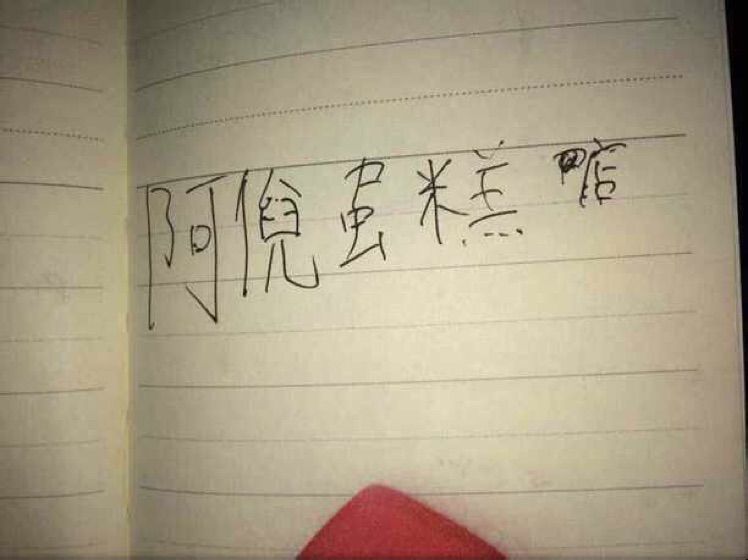 阿倪蛋糕店